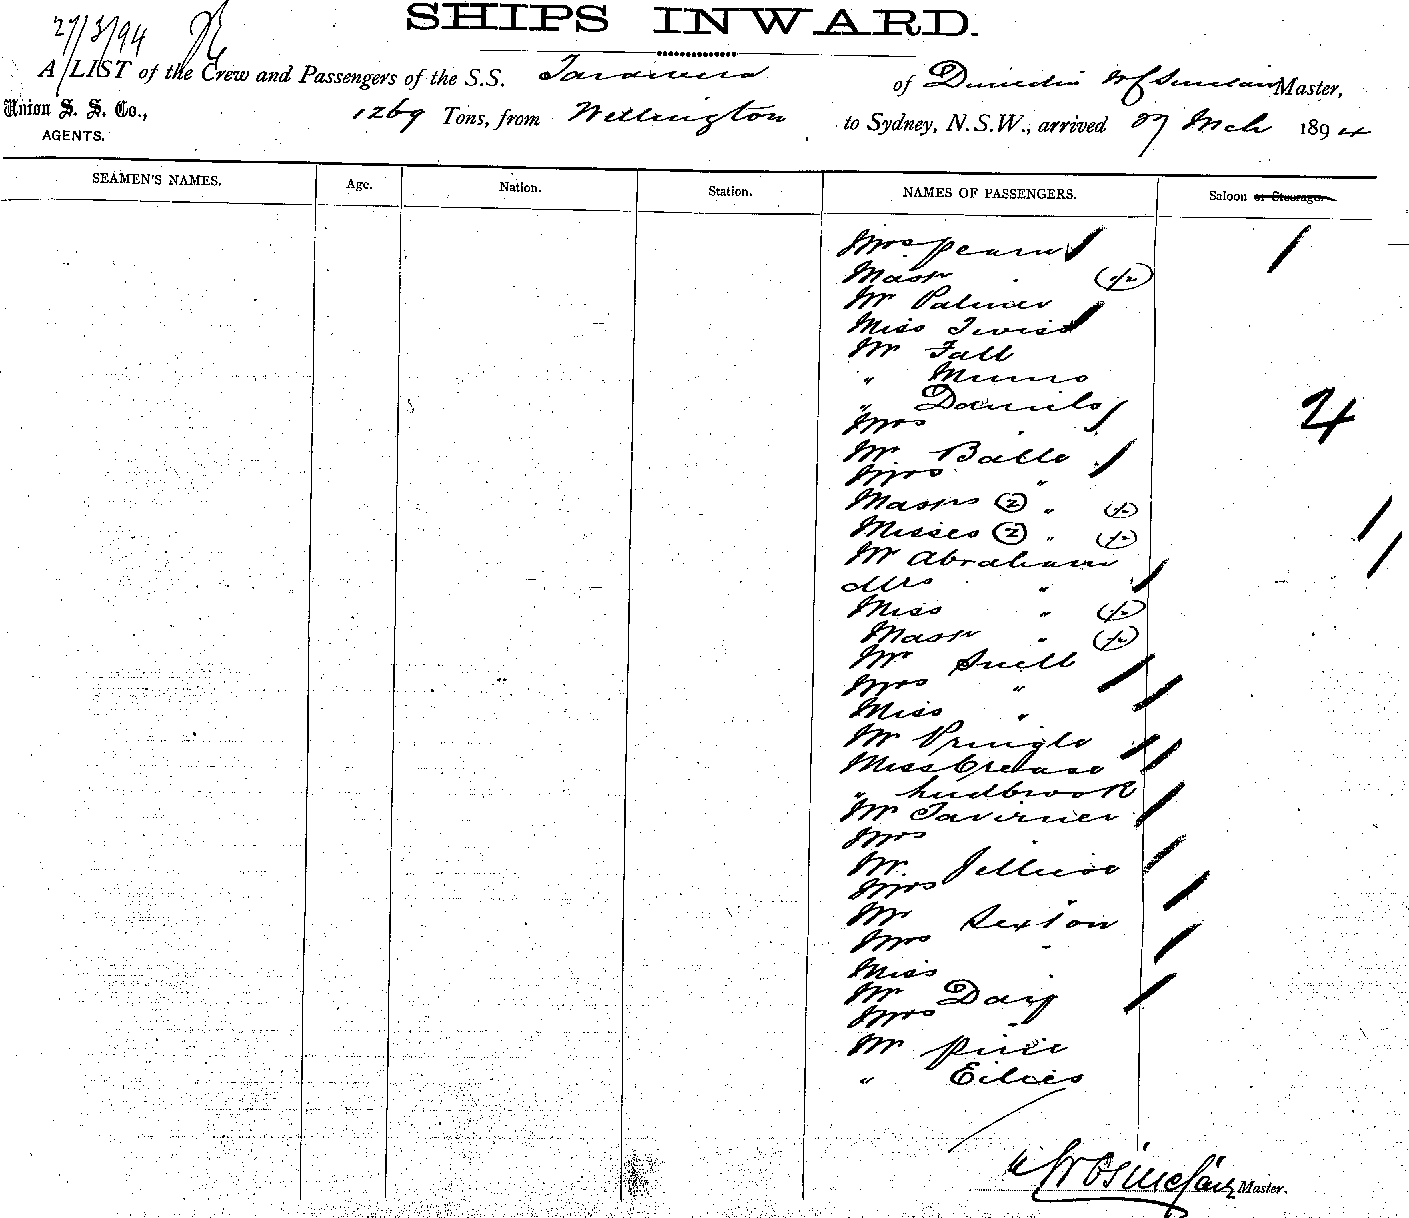 27/3/94
SHIPS INWARD.
A LIST of the Crew and Passengers of the S.S. Tarawera of Dunedin W C Sinclair Master,
Union S. S. Co., 1269 Tons, from Wellington to Sydney, N.S.W., arrived 27 Mch 1894
AGENTS.
SEAMEN'S NAMES. Age. Nation. Station. NAMES OF PASSENGERS. Saloon or Steerage.
Mrs
Mastr (1/2)
Mr Palmer
Miss
Mr Fall
" Munro
" Daniels
Mrs
Mr.
Mrs "
Mastrs (2) " (1/2)
Misses (2) " (1/2)
Mr Abraham
Mrs "
Miss " (1/2)
Mastr " (1/2)
Mr Snell
Mrs "
Miss "
Mr Pringle
Miss Crease
" Ludbrook
Mr Taverner
Mrs
Mr.
Mrs "
Mr Sexton
Mrs "
Miss "
Mr Day
Mrs "
Mr
"
W C Sinclair Master.